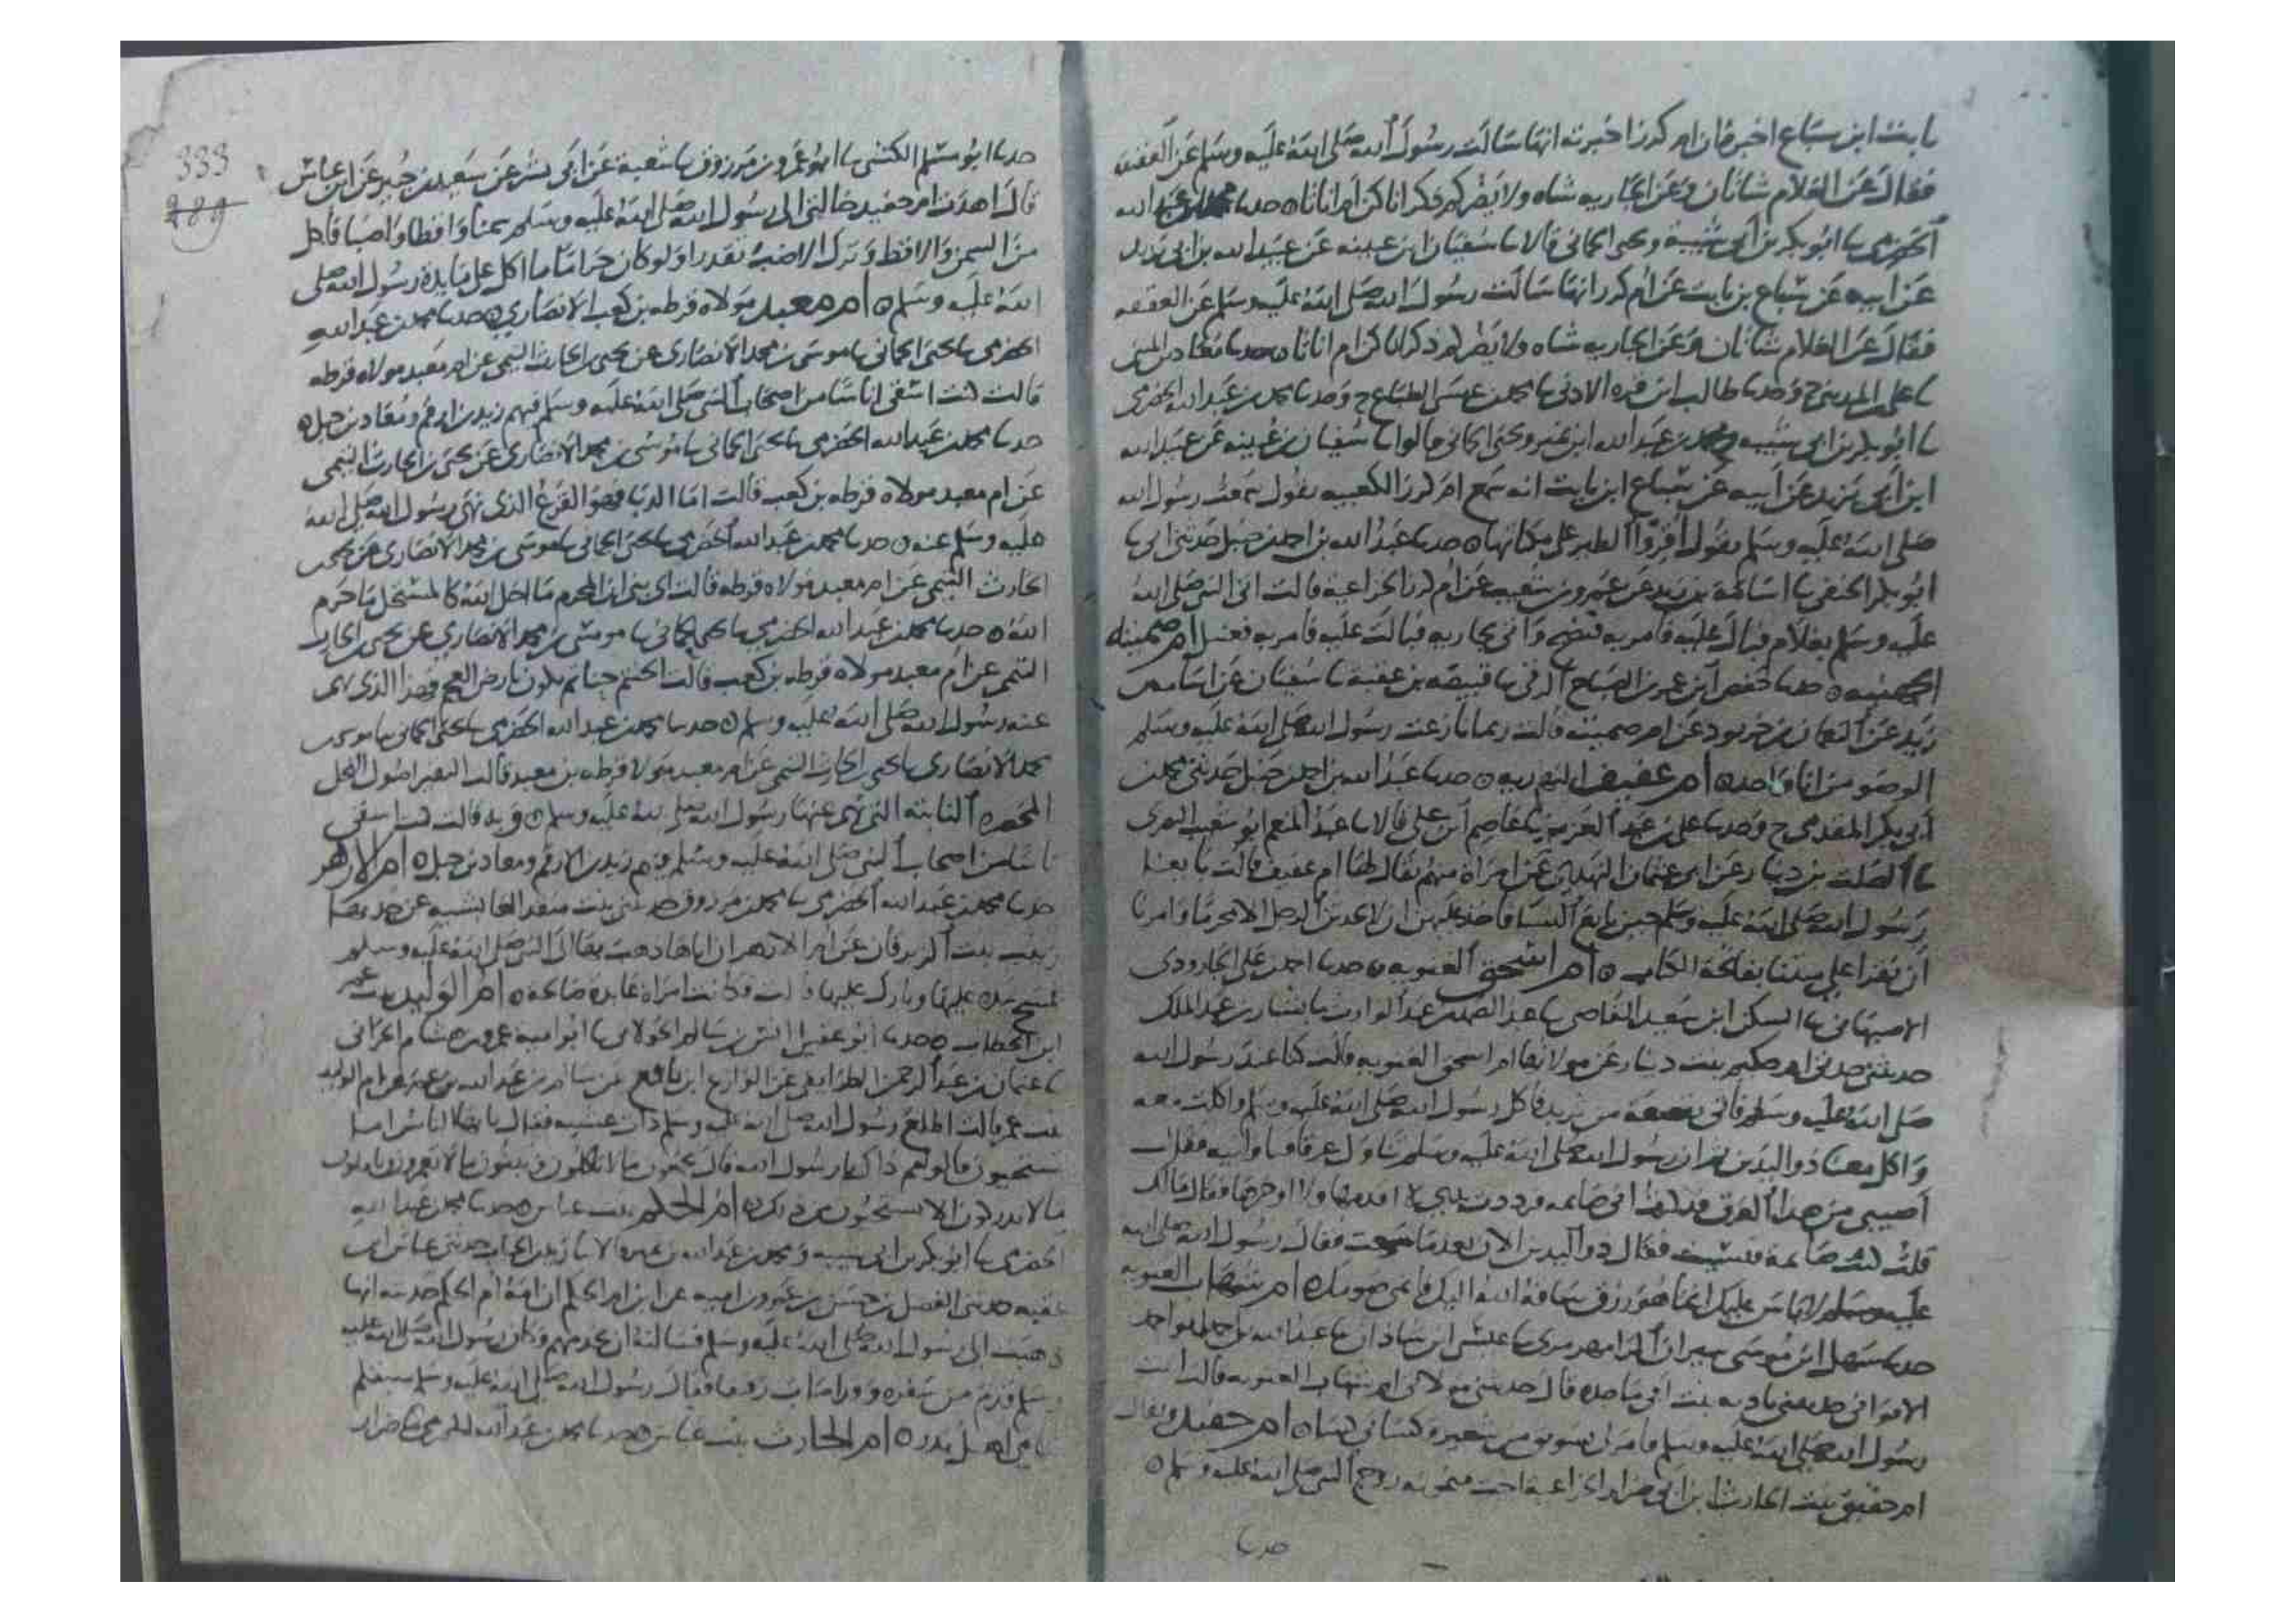 ثابت ابن سباع اخبره ان ام كرز اخبرته انها سالت رسول الله صلى الله عليه وسلم عن العقيقة
فقال عن الغلام شاتان وعن الجارية شاه ولا يضركم ذكرانا كن ام اناثا ٥ حدثنا محمد بن عبد الله
الحضرمي ثنا ابو بكر بن ابي شيبة ويحيى الحماني قالا ثنا سفيان ابن عيينه عن عبيد الله بن ابي يزيد
عن ابيه عن سباع بن ثابت عن ام كرز انها سالت رسول الله صلى الله عليه وسلم عن العقيقه
فقال عن الغلام شاتان وعن الجاريه شاه ولا يضركم ذكرانا كن ام اناثا ٥ حدثنا معاذ بن المثنى
ثنا علي بن المديني ح وحدثنا طالب ابن قره الادني ثنا محمد بن عيسى الطباع ح وحدثنا محمد بن عبد الله الحضرمي
ثنا ابو بكر بن ابي شيبه ومحمد بن عبد الله ابن نمير ويحيى الحماني قالوا ثنا سفيان بن عيينه عن عبيد الله
ابن ابي يزيد عن ابيه عن سباع ابن ثابت انه سمع ام كرز الكعبيه يقول سمعت رسول الله
صلى الله عليه وسلم يقول اقروا الطير على مكاناتها ٥ حدثنا عبد الله بن احمد بن حنبل حدثني ابي ثنا
ابو بكر الحنفي ثنا اسامة بن زيد عن عمرو بن شعيب عن ام كرز الخزاعيه قالت اتي النبي صلى الله
عليه وسلم بغلام فبال عليه فامر به فنضح واتي بجاريه فبالت عليه فامر به فغسل ام صميته
الجهنيه ٥ حدثنا حفص ابن عمر بن الصباح الرقي ثنا قبيصه بن عقبة ثنا سفيان عن اسامه بن
زيد عن النعمان بن خربوذ عن ام صميته قالت ربما نازعت رسول الله صلى الله عليه وسلم
الوضو من انا واحد ٥ ام عفيف النهديه ٥ حدثنا عبد الله بن احمد بن حنبل حدثني محمد بن
ابي بكر المقدمي ح وحدثنا علي بن عبد العزيز ثنا عاصم ابن علي قالا ثنا عبد المنعم ابو سعيد النهدي
ثنا الصلت بن دينار عن ابي عثمان النهدي عن امراة منهم يقال لها ام عفيف قالت بايعنا
رسول الله صلى الله عليه وسلم حين بايع النسا فاخذ عليهن ان لا تحدثن الرجل الا محرما وامرنا
ان نقرا على ميتنا بفاتحة الكتاب ٥ ام اسحق الغنويه ٥ حدثنا احمد بن علي الجارودي
الاصبهاني ثنا السكن ابن سعيد القاضي ثنا عبد الصمد بن عبد الوارث ثنا بشار بن عبد الملك
حدثتني جدتي ام حكيم بنت دينار عن مولاتها ام اسحق الغنويه قالت كنا عند رسول الله
صلى الله عليه وسلم فاتي بقصعة من ثريد فاكل رسول الله صلى الله عليه وسلم واكلت معه
واكل معنا ذو اليدين ثم ان رسول الله صلى الله عليه وسلم ناول عرقا فقال
اصيبي من هذا العرق فذكرت اني صايمه فرددت يدي لا اقدمها ولا اوخرها فقال مالك
قلت كنت صايمة فنسيت فقال ذو اليدين الان بعد ما شبعت فقال رسول الله صلى الله
عليه وسلم لا باس عليك انما هو رزق ساقه الله اليك فاتمي صومك ٥ ام شهاب الغنويه
حدثنا سهل ابن موسى شيران الرامهرمزي ثنا عبد الواحد
مولاتي ام شهاب الغنويه قالت اتيت
رسول الله صلى الله عليه وسلم فامر لي من شعير وكساني كساه ٥ ام حفيد ويقال
ام حفيق بنت الحارث ابن ابي ضرار الخزاعية اخت ميمونه زوج النبي صلى الله عليه وسلم ٥
حدثنا
333
289
حدثنا ابو مسلم الكشي ثنا ابو عمرو بن مرزوق ثنا شعبة عن ابي بشر عن سعيد بن جبير عن ابن عباس
قال اهدت ام حفيد خالتي الى رسول الله صلى الله عليه وسلم سمنا واقطا واضبا فاكل
من السمن والاقط وترك الاضب تقذرا ولو كان حراما ما اكل على مايدة رسول الله صلى
الله عليه وسلم ٥ ام معبد مولاه قرظه بن كعب الانصاري ٥ حدثنا محمد بن عبد الله
الحضرمي ثنا يحيى الحماني ثنا موسى بن محمد الانصاري عن يحيى بن الحارث التيمي عن ام معبد مولاه قرظه
قالت كنت اسقي اناسا من اصحاب النبي صلى الله عليه وسلم فيهم زيد بن ارقم ومعاذ بن جبل ٥
حدثنا محمد بن عبد الله الحضرمي ثنا يحيى الحماني ثنا موسى بن محمد الانصاري عن يحيى بن الحارث التيمي
عن ام معبد مولاه قرظه بن كعب قالت اما الدبا فهو القرع الذي نهى رسول الله صلى الله
عليه وسلم عنه ٥ حدثنا محمد بن عبد الله الحضرمي ثنا يحيى الحماني ثنا موسى بن محمد الانصاري عن يحيى بن
الحارث التيمي عن ام معبد مولاه قرظه قالت اي بني ان المحرم ما احل الله كالمستحل ما حرم
الله ٥ حدثنا محمد بن عبد الله الحضرمي ثنا يحيى الحماني ثنا موسى بن محمد الانصاري عن يحيى بن الحارث
التيمي عن ام معبد مولاه قرظه بن كعب قالت الحنتم حناتم يكون بارض العجم فهذا الذي نهى
عنه رسول الله صلى الله عليه وسلم ٥ حدثنا محمد بن عبد الله الحضرمي ثنا يحيى الحماني ثنا موسى بن
محمد الانصاري ثنا يحيى بن الحارث التيمي عن ام معبد مولاه قرظه بن معبد قالت النقير اصول النخل
المخضره الثابته التي نهى عنها رسول الله صلى الله عليه وسلم ٥ وبه قالت كنت اسقي
ناسا من اصحاب النبي صلى الله عليه وسلم فيهم زيد بن الارقم ومعاذ بن جبل ٥ ام الازهر
حدثنا محمد بن عبد الله الحضرمي ثنا محمد بن مرزوق حدثتني بنت منقذ العايشيه عن جدتها
زينب بنت الزبرقان عن ام الازهر ان اباها ذهب بها الى النبي صلى الله عليه وسلم
فمسح يده عليها وبارك عليها وكانت امراة عابدة صالحة ٥ ام الوليد بنت عمر
ابن الخطاب ٥ حدثنا ابو عقيل انس بن سالم الخولاني ثنا ابو اميه عمرو بن هشام الحراني
ثنا عثمان بن عبد الرحمن الطرايفي عن الوازع ابن نافع عن سالم بن عبد الله بن عمر عن ام الوليد
بنت عمر قالت اطلع رسول الله صلى الله عليه وسلم ذات عشيه فقال يا ايها الناس اما
تستحيون قالوا مم ذاك يا رسول الله قال تجمعون ما لا تاكلون وتبنون ما لا تعمرون وتاملون
ما لا تدركون الا تستحيون من ذلك ٥ ام الحكم بنت عباس ٥ حدثنا محمد بن عبد الله
الحضرمي ثنا ابو بكر بن ابي شيبه ومحمد بن عبد الله بن نمير قالا ثنا زيد بن الحباب حدثني عياش ابن
عقبه حدثني الفضل بن حسن بن عمرو بن اميه عن ابن ام الحكم ان امه ام الحكم حدثته انها
ذهبت الى رسول الله صلى الله عليه وسلم فسالته ان يخدمهم وكان رسول الله صلى الله عليه
وسلم قدم من سفره وقد اصاب رقيقا فقال رسول الله صلى الله عليه وسلم سبقكم
يتامى اهل بدر ٥ ام الحارث بنت عياش ٥ حدثنا محمد بن عبد الله الحضرمي ثنا ضرار